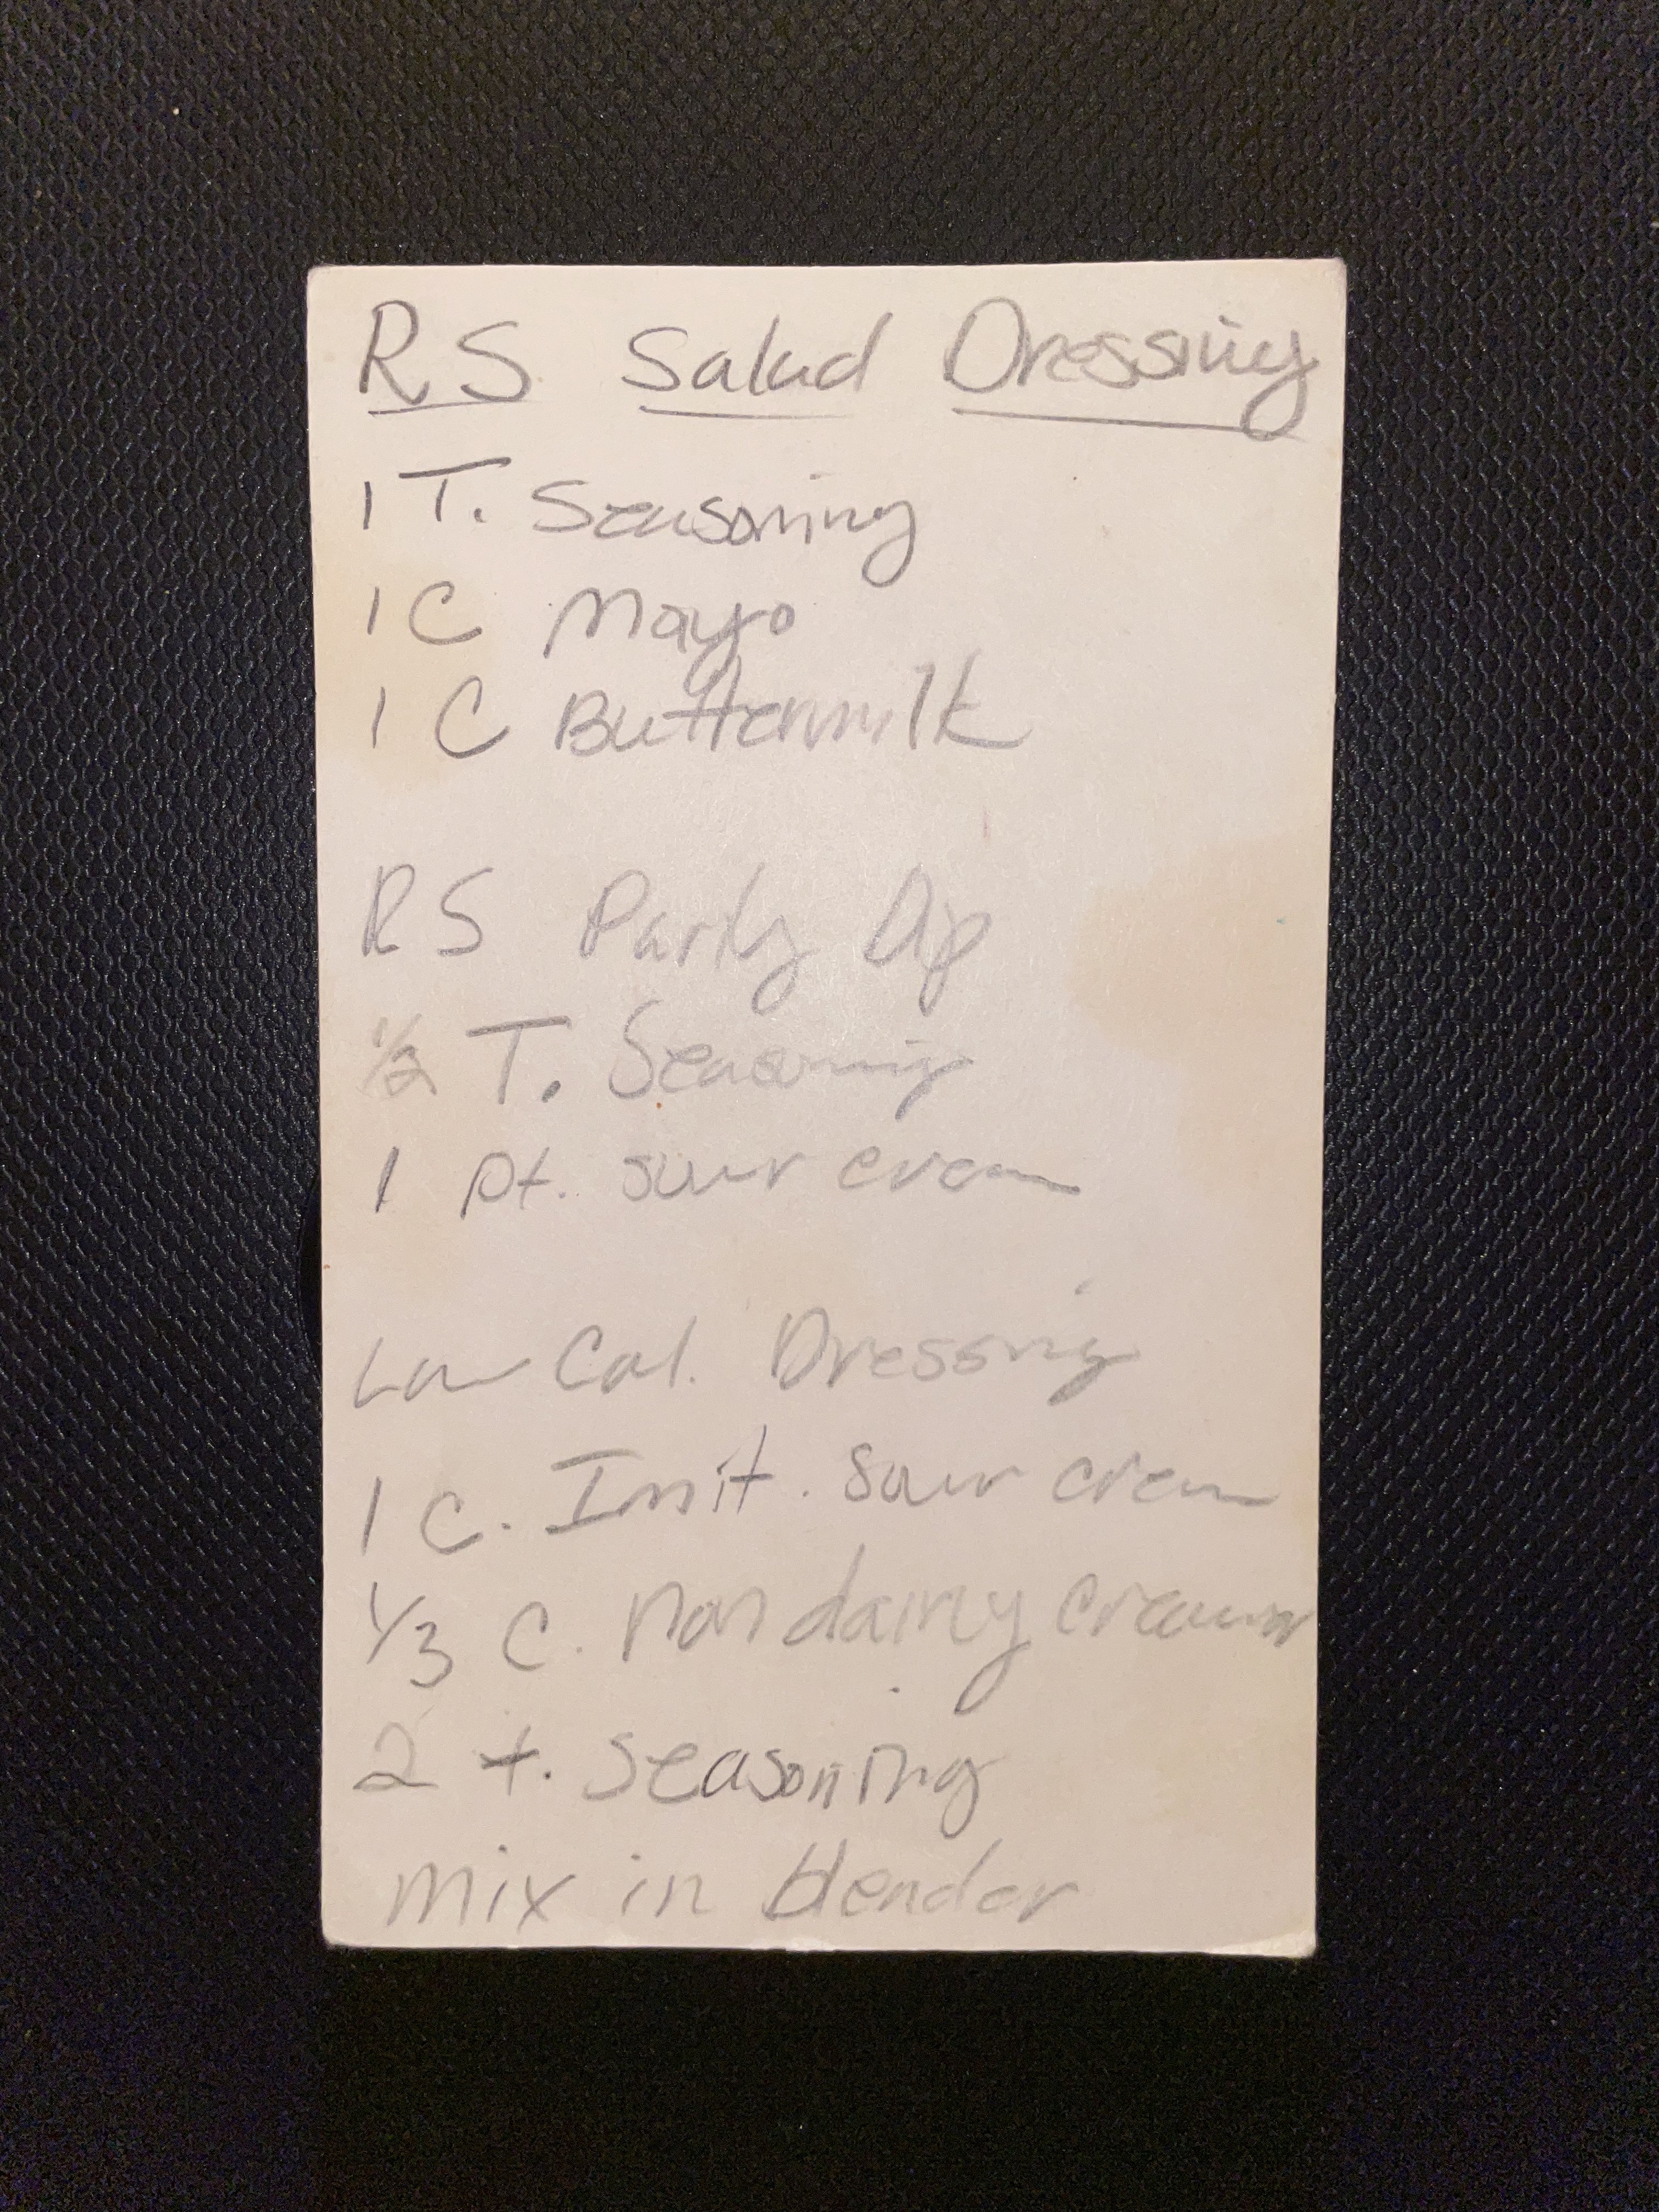 RS Salad Dressing
1 T. Seasoning
1 C Mayo
1 C Buttermilk
RS Party Dip
1/2 T. Seasoning
1 pt. sour cream
Low Cal. Dressing
1 C. Imit. sour cream
1/3 C. non dairy creamer
2 t. seasoning
mix in blender